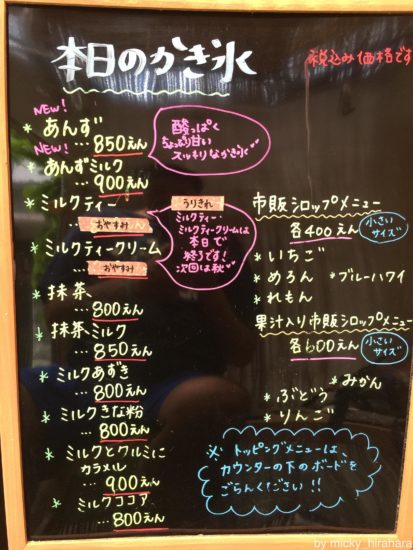 本日のかき氷
税込み価格です
NEW!
* あんず
… 850えん
NEW!
* あんずミルク
… 900えん
酸っぱく
ちょっぴり甘い
スッキリなかき氷
* ミルクティー
… おやすみ
* ミルクティークリーム
… おやすみ
うりきれ
ミルクティー
ミルクティークリームは
本日で
終了です!
次回は秋
* 抹茶
… 800えん
* 抹茶ミルク
… 850えん
* ミルクあずき
… 800えん
* ミルクきな粉
… 800えん
* ミルクとクルミに
カラメル
… 900えん
* ミルクココア
… 800えん
市販シロップメニュー
各400えん
小さい
サイズ
* いちご
* めろん * ブルーハワイ
* れもん
果汁入り市販シロップメニュー
各500えん
小さい
サイズ
* みかん
* ぶどう
* りんご
※ トッピングメニューは、
カウンターの下のボードを
ごらんください!!
by micky_hirahara